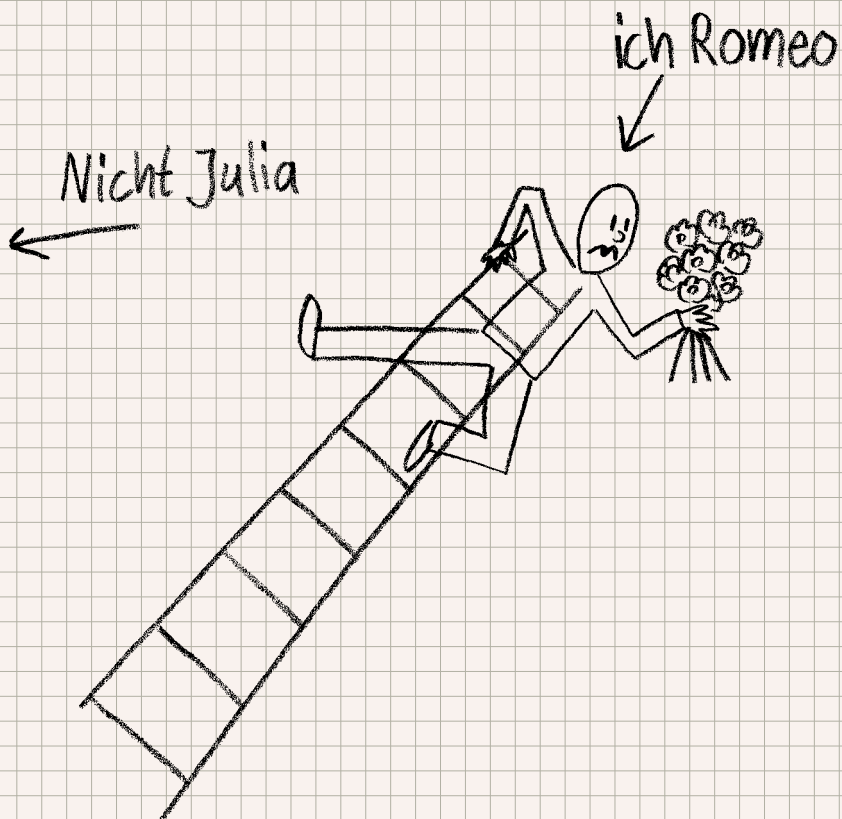 ich Romeo
Nicht Julia